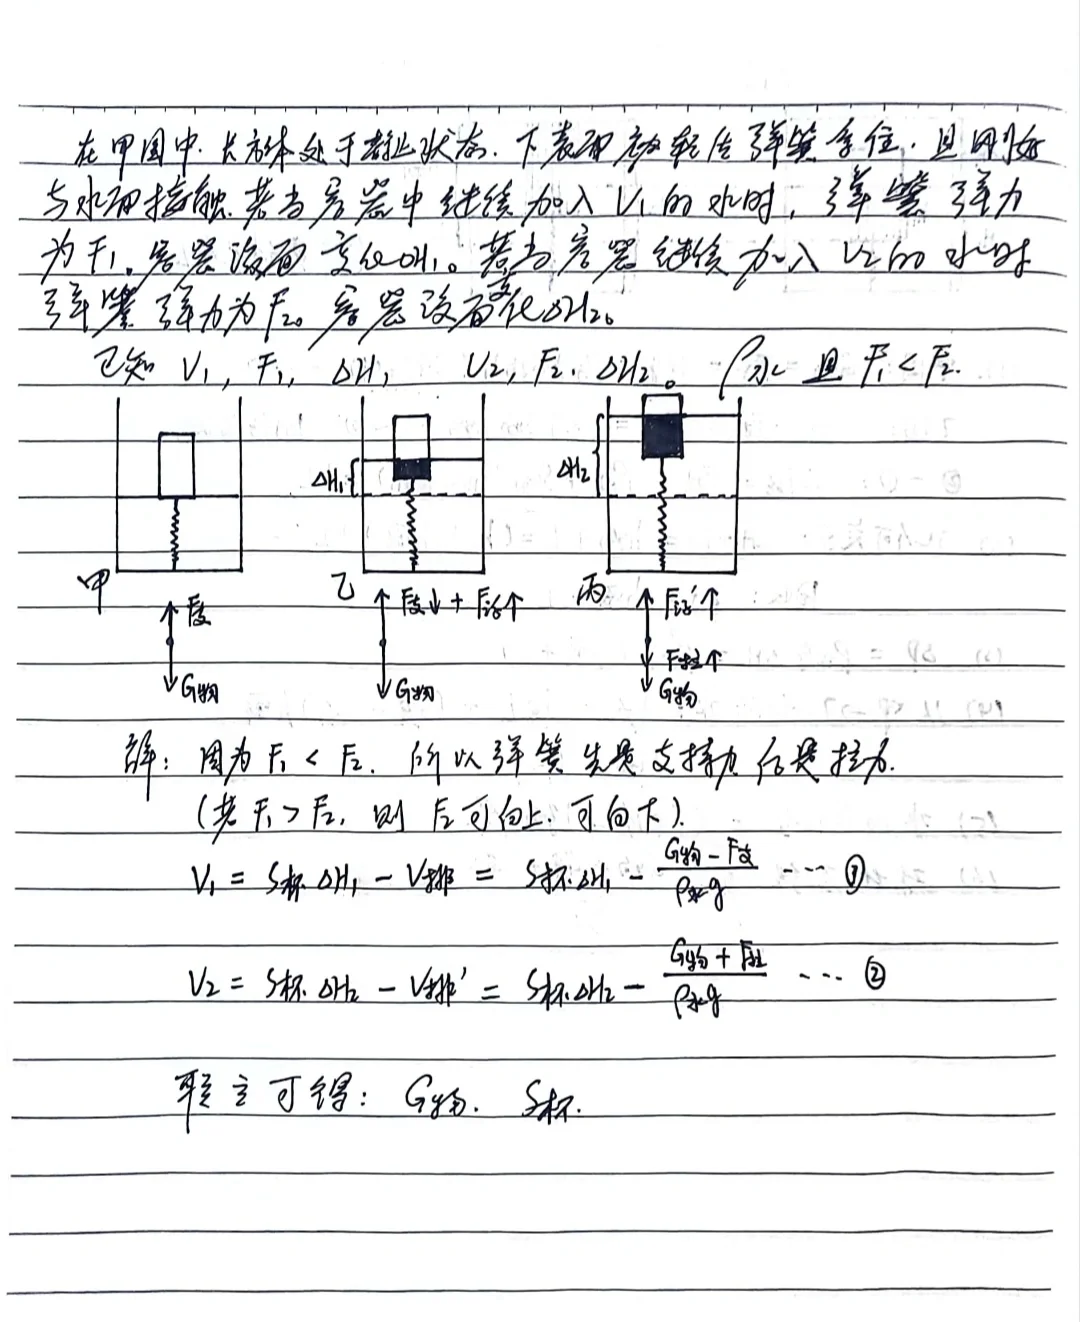 在甲图中.长方体处于静止状态.下表面被轻质弹簧拿住.且刚好
与水面接触.若当容器中继续加入V₁的水时，弹簧弹力
为F₁。容器液面变化ΔH₁。若当容器继续加入V₂的水时
弹簧弹力为F₂。容器液面变化ΔH₂。
已知 V₁, F₁, ΔH₁ V₂, F₂. ΔH₂。 ρ水 且 F₁<F₂.
ΔH₁ ΔH₂
甲 乙 丙
F支 F支↓+F浮↑ F浮'↑
F拉↑
G物 G物 G物
解：因为F₁<F₂. 所以弹簧先是支持力后是拉力.
(若F₁>F₂, 则F₂可向上.可向下).
V₁ = S杯ΔH₁ - V排 = S杯.ΔH₁ - (G物-F支)/(ρ水g) ... ①
V₂ = S杯.ΔH₂ - V排' = S杯.ΔH₂ - (G物+F拉)/(ρ水g) ... ②
联立可得: G物. S杯.